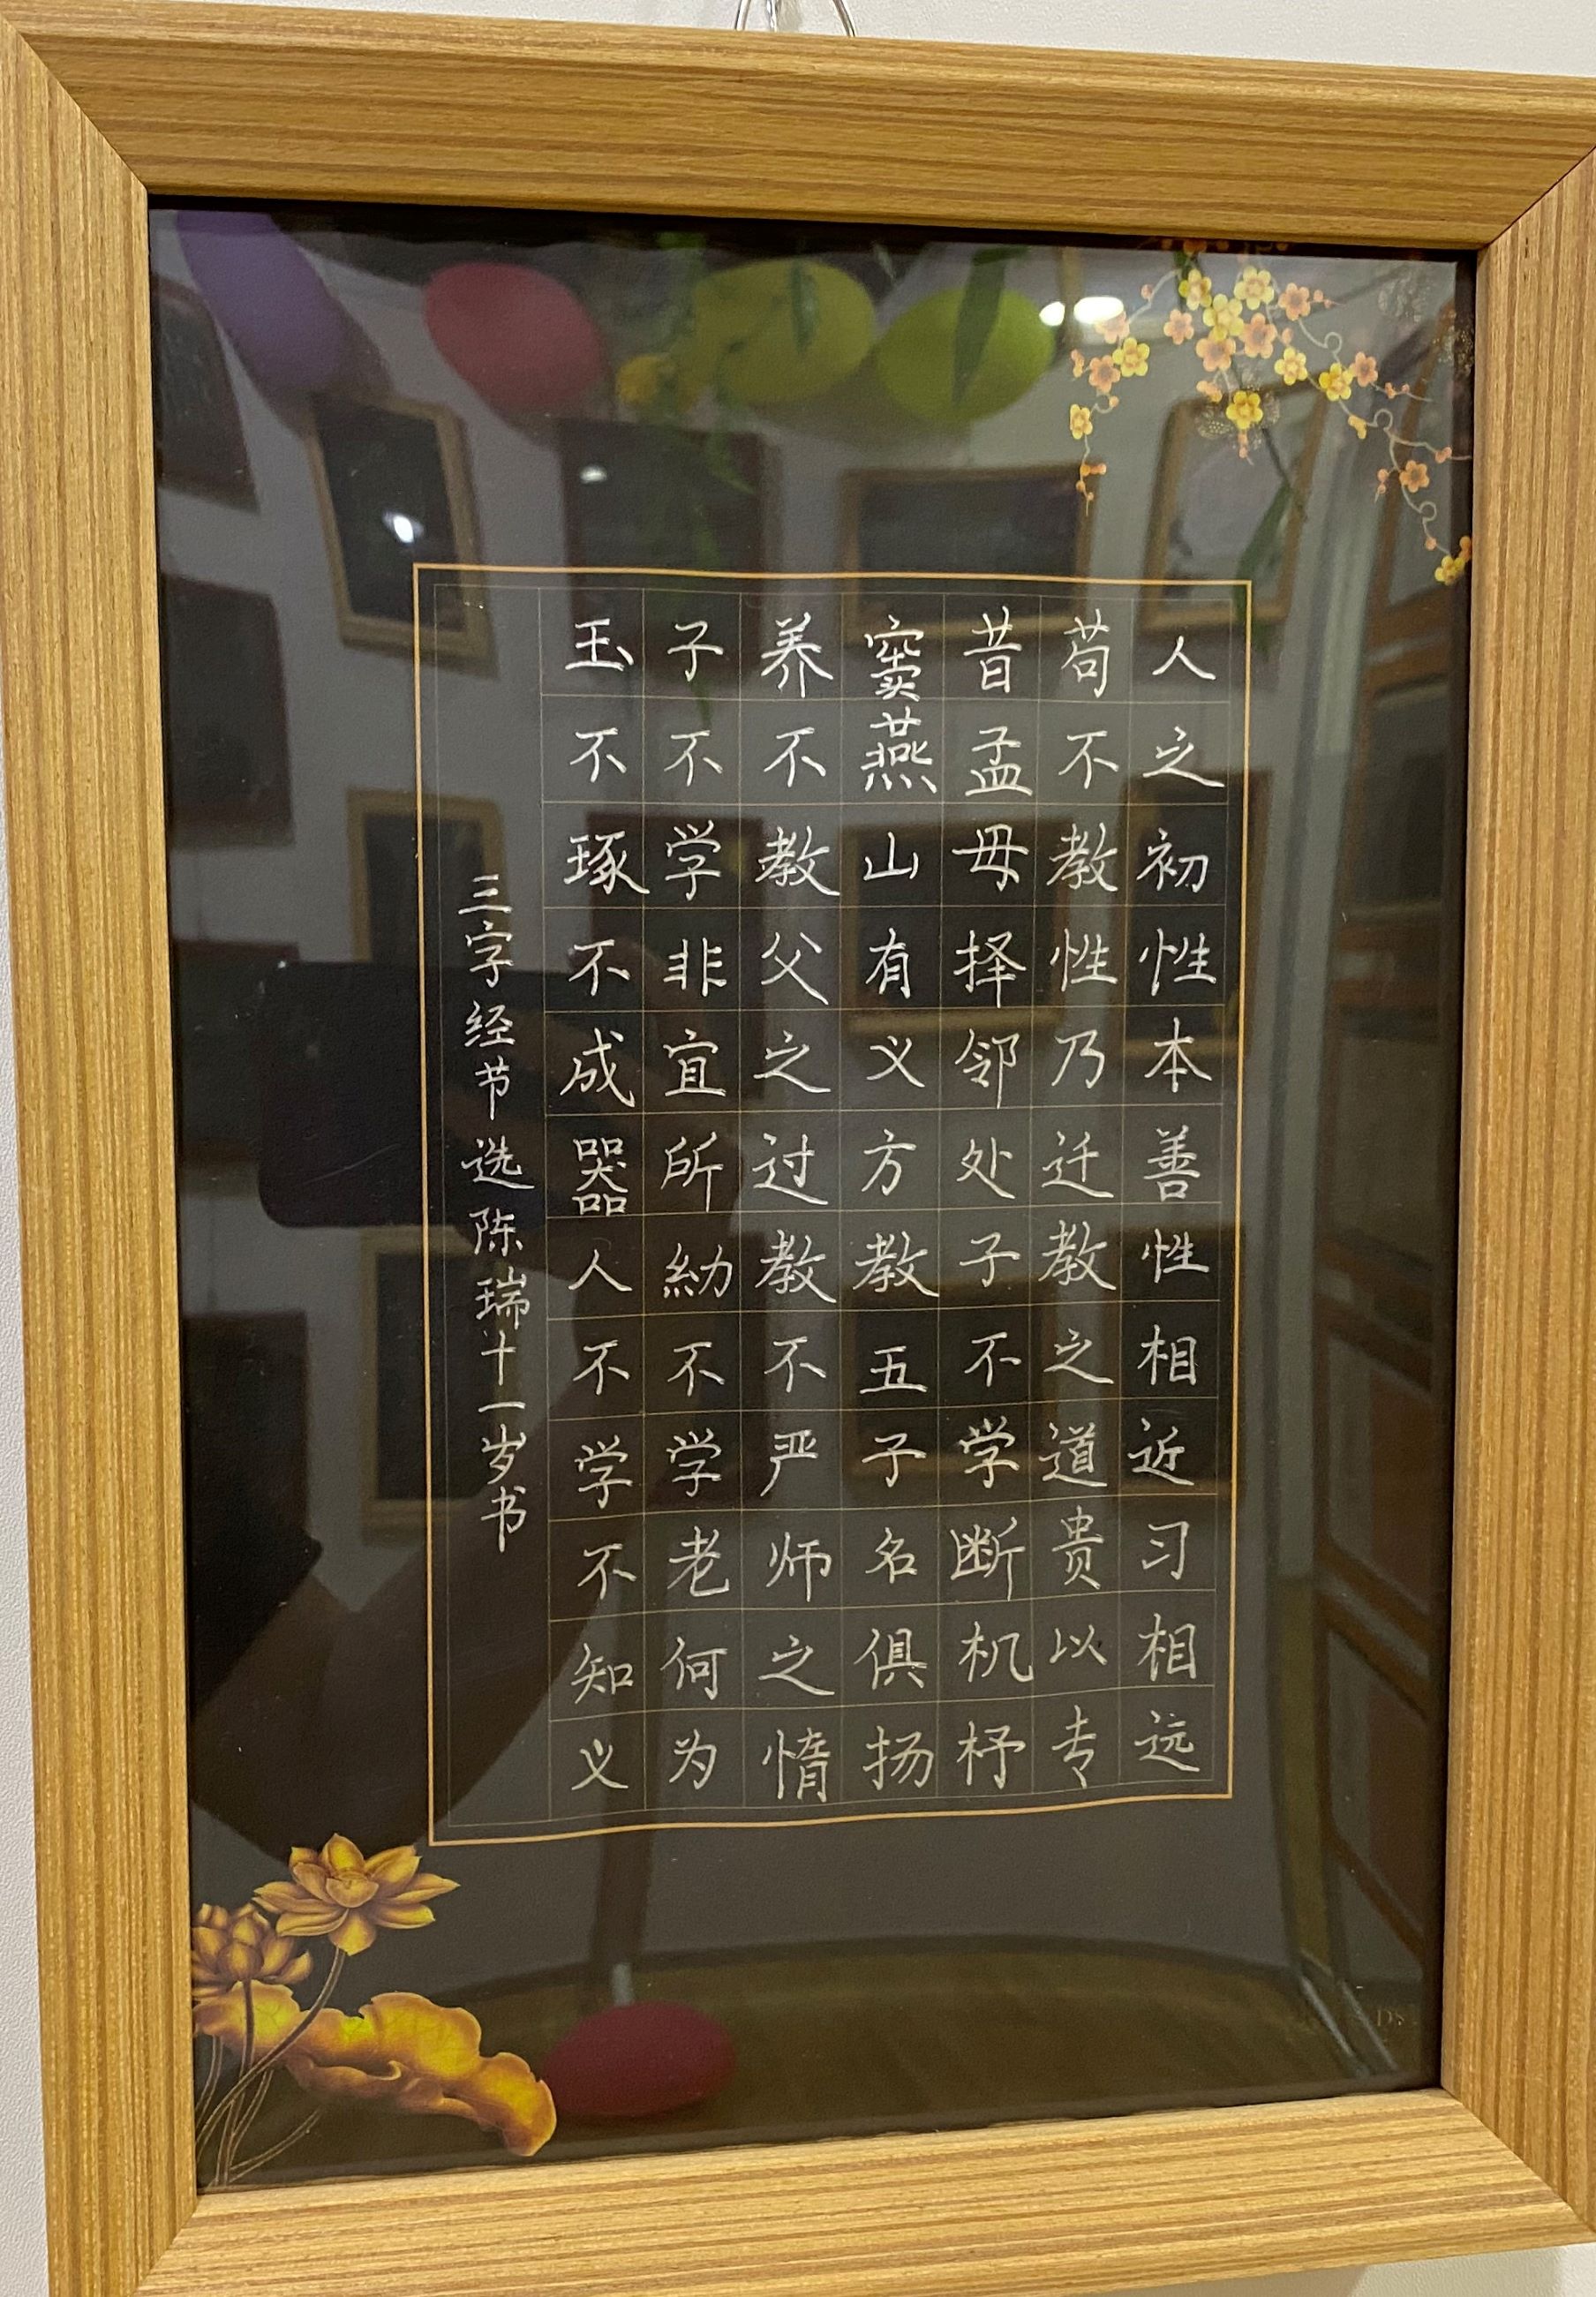 人之初性本善性相近习相远
苟不教性乃迁教之道贵以专
昔孟母择邻处子不学断机杼
窦燕山有义方教五子名俱扬
养不教父之过教不严师之惰
子不学非宜所幼不学老何为
玉不琢不成器人不学不知义
三字经节选陈瑞十一岁书